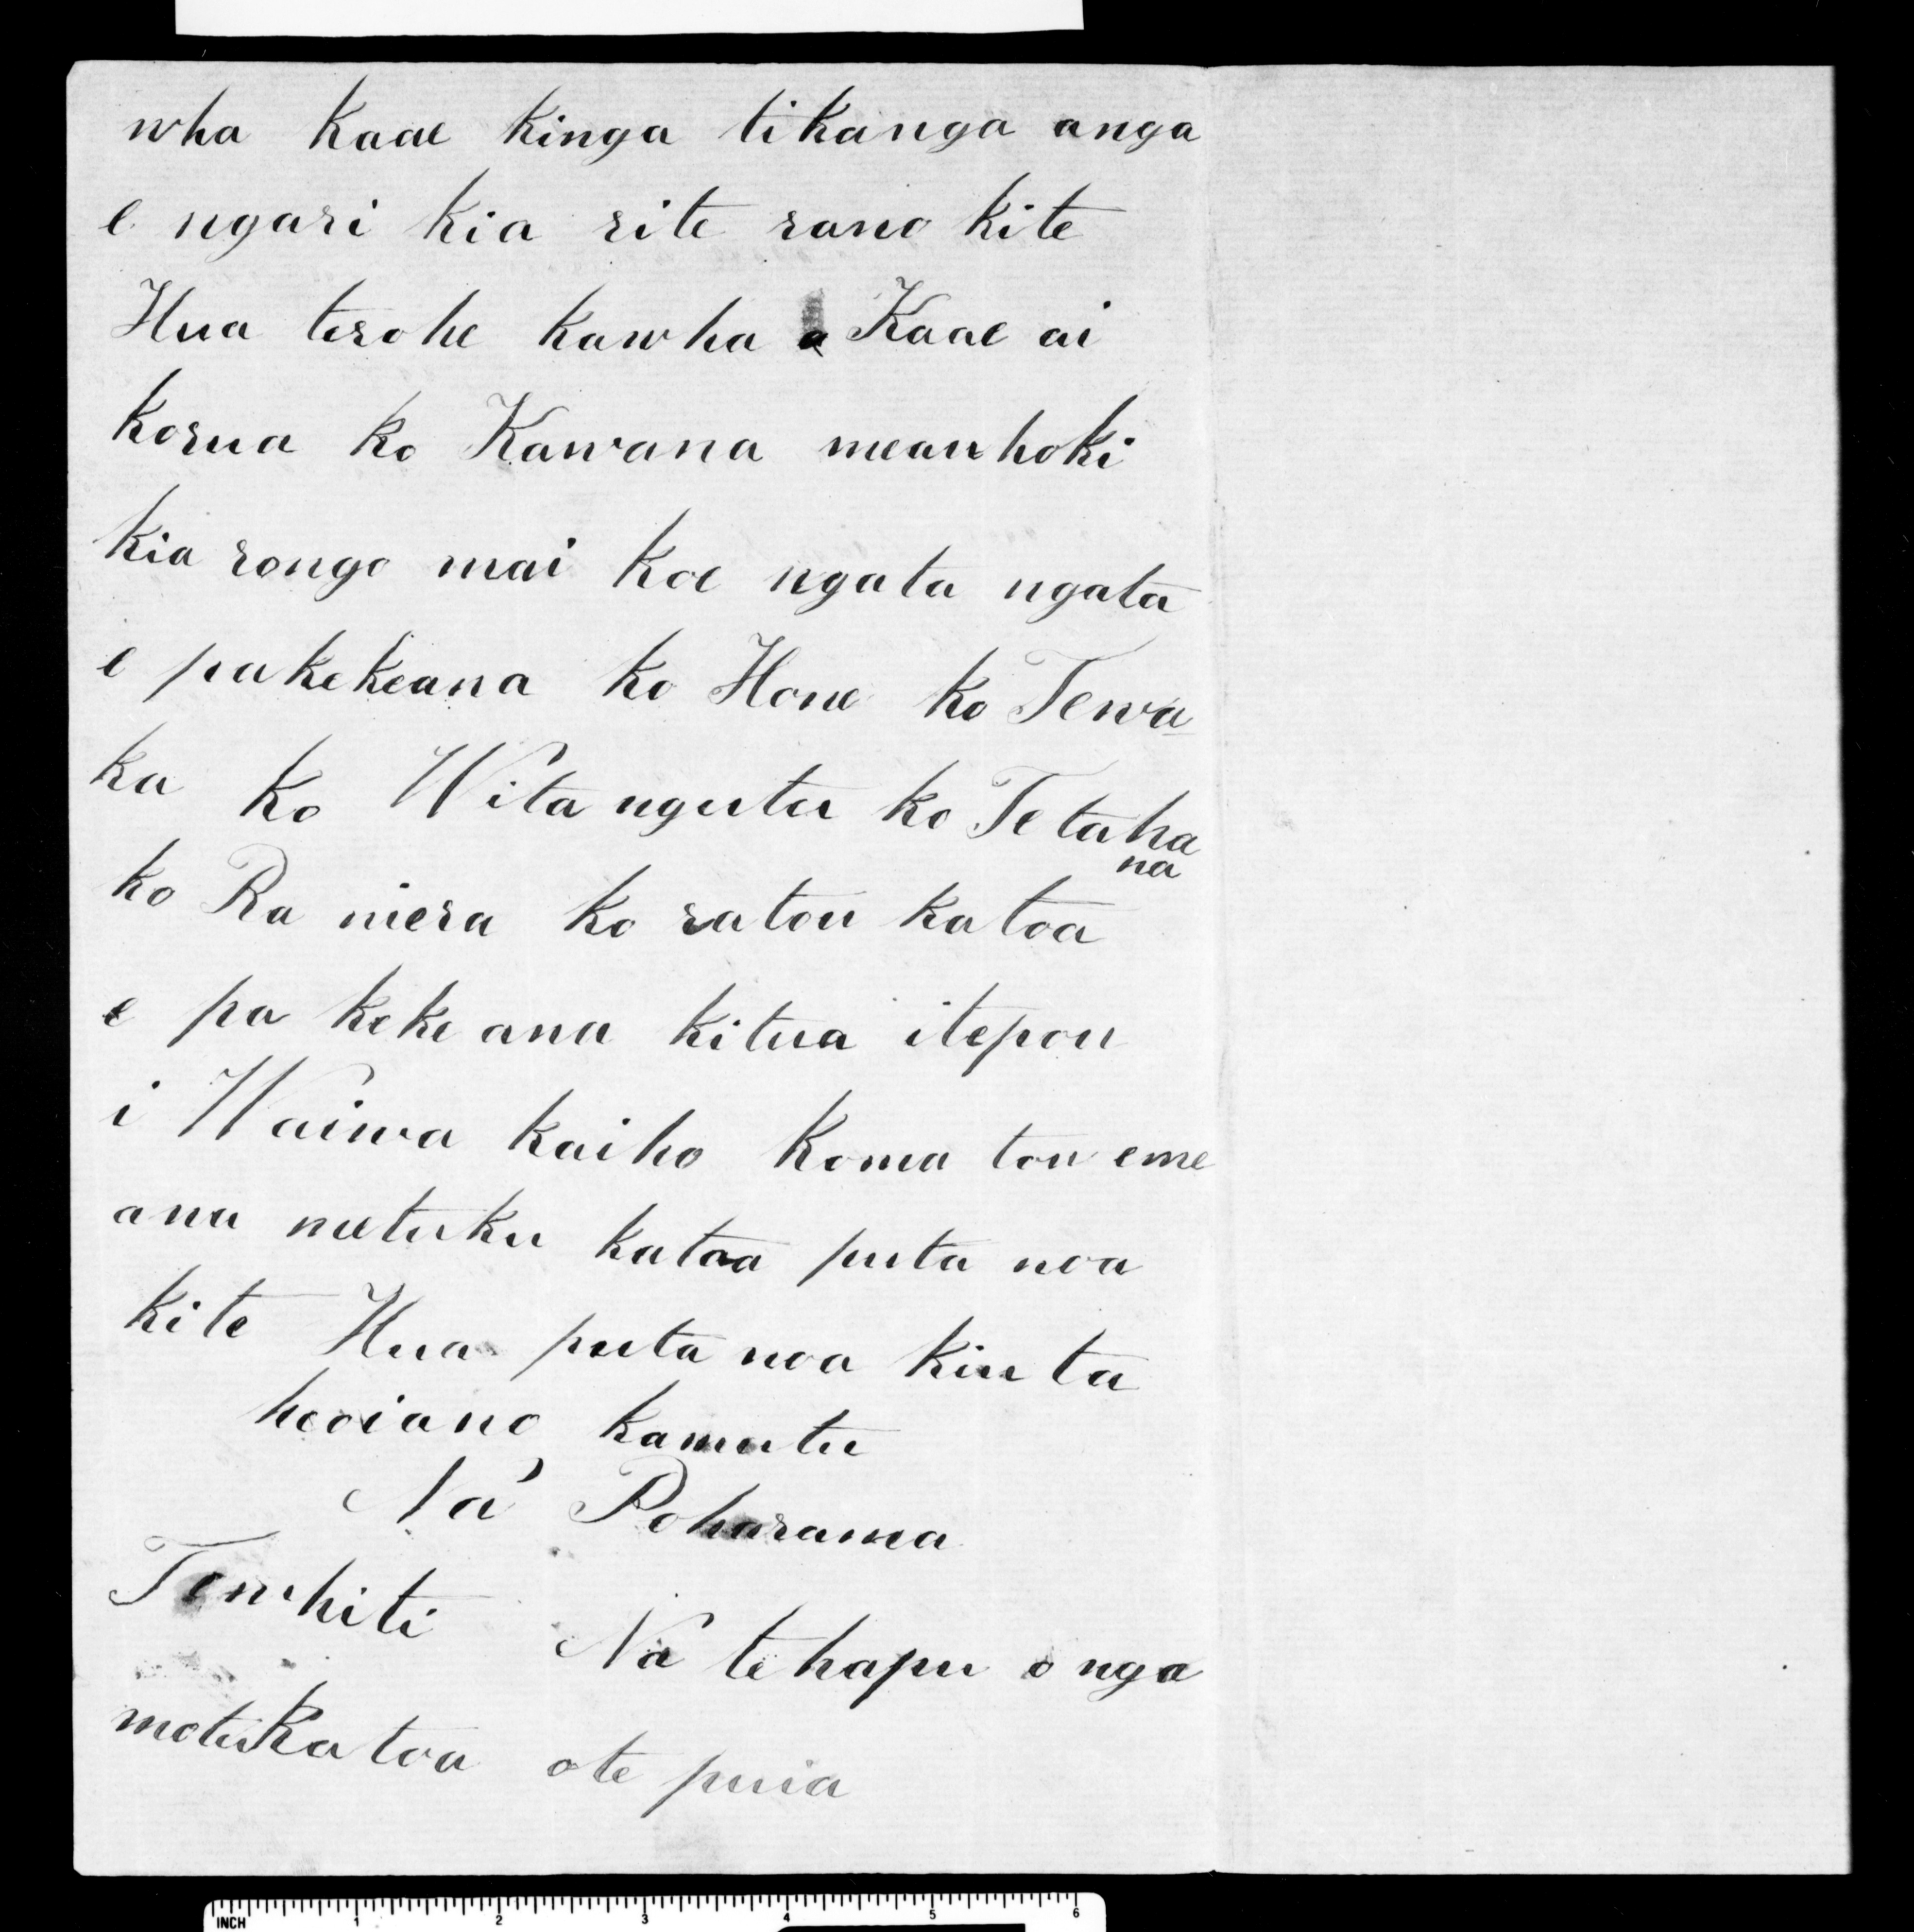 wha Kaae Kinga tikanga anga
e ngari Kia rite rano Kite
Hua terohe Kawha a Kaae ai
Korua ko Kawana meauhoki
Kia rongo mai Koe ngata ngata
e pakekeana ko Hone ko Tewa
ka ko Witangutu ko Tetaha
na
ko Ra niera ko ratou katoa
e pa keke ana kitua itepou
i Waiwa kaiho Koma tou eme
ana metuku katoa puta noa
kite Hua puta noa kiuta
heoiano kamutu
Na Poharama
Tewhiti Na te hapu o nga
motuKatoa ote puia
INCH 1 2 3 4 5 6